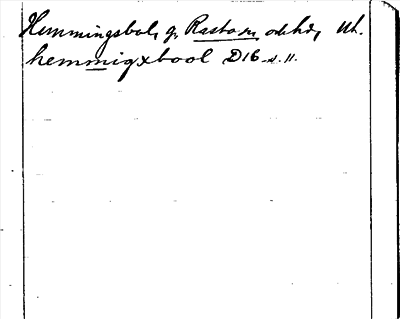 Hemmingsbol, g. Rasbo sn, och hd, Ul.
hemmigxbool D16 s. 11.